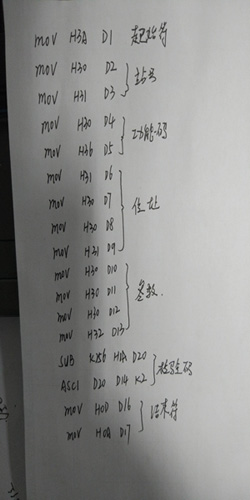 mov H3A D1 起始符
mov H30 D2
mov H31 D3 站号
mov H30 D4
mov H36 D5 功能码
mov H31 D6
mov H30 D7
mov H30 D8 位址
mov H31 D9
mov H30 D10
mov H30 D11 参数
mov H30 D12
mov H32 D13
SUB K256 H1A D20
ASCI D20 D14 K2 校验码
mov H0D D16
mov H0A D17 结束符